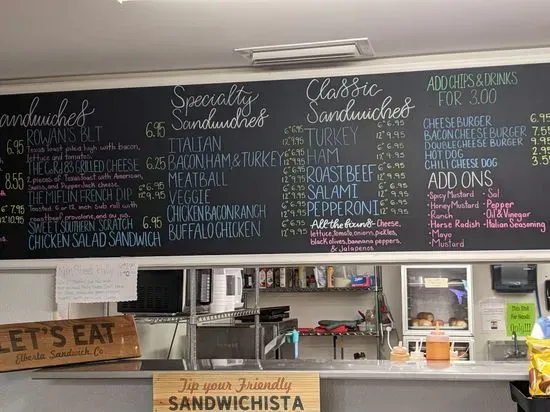 Sandwiches
6.95
8.55
7"9.95
12"10.95
ROWAN'S BLT 6.95
Texas toast piled high with bacon,
lettuce and tomatoes.
THE GURG'S GRILLED CHEESE 6.25
2 pieces of Texas toast with American,
Swiss, and Pepperjack cheese.
THE MIFFLIN FRENCH DIP 6"6.95 12"9.95
Toasted 6 or 12 inch sub roll with
roast beef, provolone, and au jus.
SWEET SOUTHERN SCRATCH 6.95
CHICKEN SALAD SANDWICH
Specialty
Sandwiches
ITALIAN 6"6.95 12"9.95
BACON HAM & TURKEY 6"6.95 12"9.95
MEATBALL 6"6.95 12"9.95
VEGGIE 6"6.95 12"9.95
CHICKEN BACON RANCH 6"6.95 12"9.95
BUFFALO CHICKEN 6"6.95 12"9.95
Classic
Sandwiches
TURKEY 6"6.95 12"9.95
HAM 6"6.95 12"9.95
ROAST BEEF 6"6.95 12"9.95
SALAMI 6"6.95 12"9.95
PEPPERONI 6"6.95 12"9.95
All the buns - Cheese,
lettuce, tomato, onions, pickles,
black olives, bannana peppers,
& Jalapenos
ADD CHIPS & DRINKS
FOR 3.00
CHEESE BURGER 6.95
BACON CHEESE BURGER 7.5
DOUBLE CHEESE BURGER 9.95
HOT DOG 2.95
CHILI CHEESE DOG 3.5
ADD ONS
- Spicy Mustard - Salt
- Honey Mustard - Pepper
- Ranch - Oil & Vinegar
- Horse Radish - Italian Seasoning
- Mayo
- Mustard
LET'S EAT
Elberta Sandwich Co.
Tip your Friendly
SANDWICHISTA